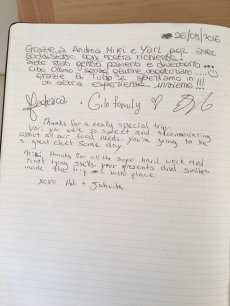 26/05/2016
Grazie a Andrea Miki e Yari per aver
soddisfatto ogni nostra richiesta!
siete stati gentili pazienti e divertenti....
Cibo ottimo
Grazie di tutto
un'altra esperienza insieme!!!
Federica • Gilo family
Thanks for a really special trip.
Yari you were so patient and accommodating
about all our food needs. you're going to be
a great chef some day.
Miki thanks for all the super hard work and
knot tying skills. your presents and smiles
made the trip a place.
xoxo